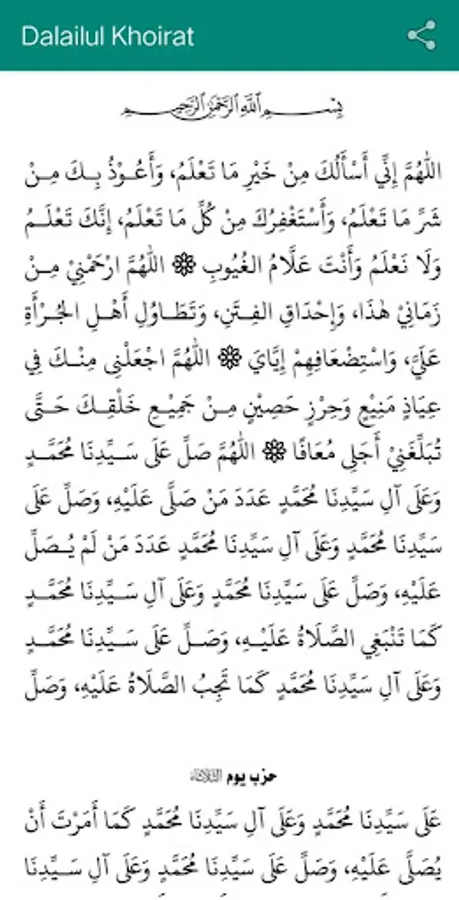 Dalailul Khoirat
بِسْمِ اللَّهِ الرَّحْمَٰنِ الرَّحِيمِ
اللّٰهُمَّ إِنِّي أَسْأَلُكَ مِنْ خَيْرِ مَا تَعْلَمُ، وَأَعُوْذُ بِكَ مِنْ
شَرِّ مَا تَعْلَمُ، وَأَسْتَغْفِرُكَ مِنْ كُلِّ مَا تَعْلَمُ، إِنَّكَ تَعْلَمُ
وَلَا نَعْلَمُ وَأَنْتَ عَلَّامُ الغُيُوبِ ❁ اللّٰهُمَّ ارْحَمْنِيْ مِنْ
زَمَانِيْ هٰذَا، وَإِحْدَاقِ الفِتَنِ، وَتَطَاوُلِ أَهْلِ الجُرْأَةِ
عَلَيَّ، وَاسْتِضْعَافِهِمْ إِيَّايَ ❁ اللّٰهُمَّ اجْعَلْنِى مِنْكَ فِي
عِيَاذٍ مَنِيْعٍ وَحِرْزٍ حَصِيْنٍ مِنْ جَمِيْعِ خَلْقِكَ حَتَّى
تُبَلِّغَنِيْ أَجَلِى مُعَافًا ❁ اللّٰهُمَّ صَلِّ عَلَى سَيِّدِنَا مُحَمَّدٍ
وَعَلَى آلِ سَيِّدِنَا مُحَمَّدٍ عَدَدَ مَنْ صَلَّى عَلَيْهِ، وَصَلِّ عَلَى
سَيِّدِنَا مُحَمَّدٍ وَعَلَى آلِ سَيِّدِنَا مُحَمَّدٍ عَدَدَ مَنْ لَمْ يُصَلِّ
عَلَيْهِ، وَصَلِّ عَلَى سَيِّدِنَا مُحَمَّدٍ وَعَلَى آلِ سَيِّدِنَا مُحَمَّدٍ
كَمَا تَنْبَغِي الصَّلَاةُ عَلَيْهِ، وَصَلِّ عَلَى سَيِّدِنَا مُحَمَّدٍ
وَعَلَى آلِ سَيِّدِنَا مُحَمَّدٍ كَمَا تَجِبُ الصَّلَاةُ عَلَيْهِ، وَصَلِّ
حزب يوم الثلاثاء
عَلَى سَيِّدِنَا مُحَمَّدٍ وَعَلَى آلِ سَيِّدِنَا مُحَمَّدٍ كَمَا أَمَرْتَ أَنْ
يُصَلَّى عَلَيْهِ، وَصَلِّ عَلَى سَيِّدِنَا مُحَمَّدٍ وَعَلَى آلِ سَيِّدِنَا